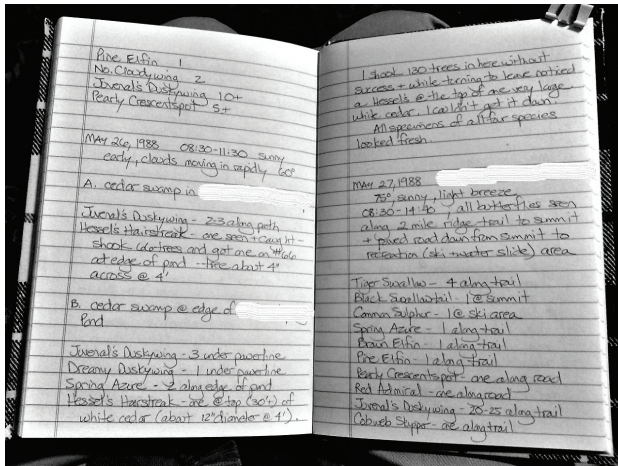 Pine Elfin 1
No. Cloudywing 2
Juvenal's Duskywing 10+
Pearly Crescentspot 5+
MAY 26, 1988 08:30-11:30 sunny
early, clouds moving in rapidly 60°
A. cedar swamp in
Juvenal's Duskywing - 2-3 along path
Hessel's Hairstreak - one seen + caught -
shook 66 trees and got one on #66
at edge of pond - tree about 4"
across @ 4'
B. cedar swamp @ edge of
Pond
Juvenal's Duskywing - 3 under powerline
Dreamy Duskywing - 1 under powerline
Spring Azure - 2 along edge of pond
Hessel's Hairstreak - one @ top (30't) of
white cedar (about 12" diameter @ 4').
I shook 130 trees in here without
success + while turning to leave noticed
a Hessel's @ the top of one very large
white cedar. I couldn't get it down.
All specimens of all four species
looked fresh.
MAY 27, 1988
75°, sunny, light breeze,
08:30-14:40, all butterflies seen
along 2 mile ridge trail to summit
+ paved road down from summit to
recreation (ski + water slide) area
Tiger Swallow - 4 along trail
Black Swallowtail - 1 @ summit
Common Sulphur - 1 @ ski area
Spring Azure - 1 along trail
Brown Elfin - 1 along trail
Pine Elfin - 1 along trail
Pearly Crescentspot - one along road
Red Admiral - one along road
Juvenal's Duskywing - 20-25 along trail
Cobweb Skipper - one along trail